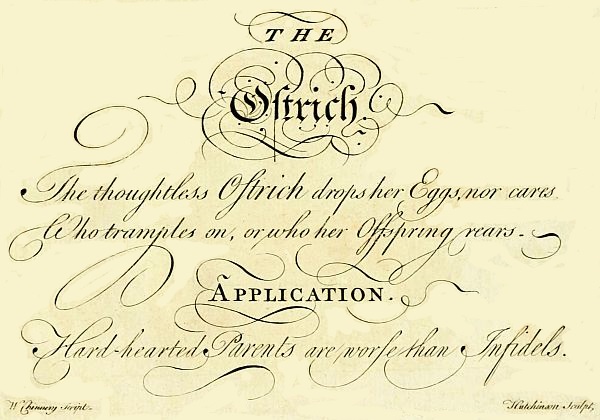 THE
Oſtrich
The thoughtless Oſtrich drops her Eggs, nor cares
Who tramples on, or who her Offspring rears.
APPLICATION.
Hard-hearted Parents are worſe than Infidels.
Script.
Hutchinson Sculpt.